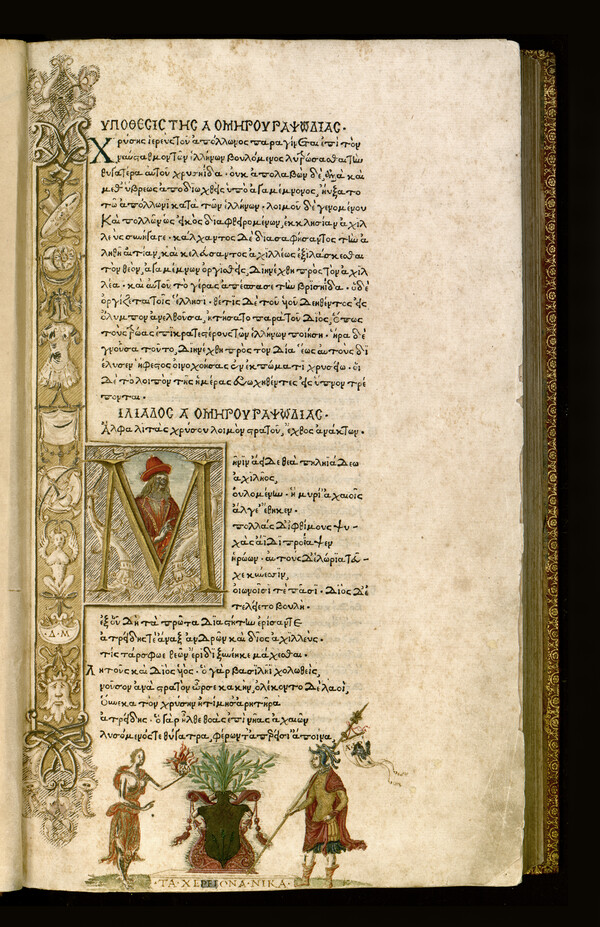 ΥΠΟΘΕΣΙΣ ΤΗΣ Α ΟΜΗΡΟΥ ΡΑΨΩΔΙΑΣ·
Χρύσης ἱερεὺς τοῦ ἀπόλλωνος παραγίνεται ἐπὶ τὸν
ναύσταθμον τῶν ἑλλήνων βουλόμενος λυτρώσασθαι τὴν
θυγατέρα αὐτοῦ χρυσηίδα· οὐκ ἀπολαβὼν δὲ, ἀλλὰ καὶ
μεθ' ὕβρεως ἀποδιωχθεὶς ὑπὸ ἀγαμέμνονος, ηὔξατο
τῶ ἀπόλλωνι κατὰ τῶν ἑλλήνων· λοιμοῦ δὲ γενομένου
Καὶ πολλῶν ὡς εἰκὸς διαφθειρομένων, ἐκκλησίαν ἀχιλ
λεὺς συνήγαγε· κάλχαντος δὲ διασαφήσαντος τὴν ἀ
ληθῆ αἰτίαν, καὶ κελεύσαντος ἀχιλλέως ἐξιλάσκεσθαι
τὸν θεὸν, ἀγαμέμνων ὀργισθεὶς, διηνέχθη πρὸς τὸν ἀχιλ
λέα· καὶ αὐτοῦ τὸ γέρας ἀπέσπασε τὴν βρισηίδα· ὁ δὲ
ὀργίζεται τοῖς ἕλλησι· θέτις δὲ τοῦ υἱοῦ δεηθέντος εἰς
ὄλυμπον ἀνελθοῦσα, ἠτήσατο παρὰ τοῦ διὸς, ὅπως
τοὺς τρῶας ἐπικρατεστέρους τῶν ἑλλήνων ποιήση· ἥρα δὲ
γνοῦσα τοῦτο, διηνέχθη πρὸς τὸν δία· ἕως αὐτοὺς δι
έλυσεν ἥφαιστος οἰνοχοήσας ἐν ἐκπώματι χρυσῶ· οἱ
δὲ τὸ λοιπὸν τῆς ἡμέρας εὐωχηθέντες εἰς ὕπνον τρέ
πονται·
ΙΛΙΑΔΟΣ Α ΟΜΗΡΟΥ ΡΑΨΩΔΙΑΣ·
Ἄλφα λιτὰς χρύσου λοιμὸν στρατοῦ, ἔχθος ἀνάκτων·
Μῆνιν ἄειδε θεὰ πηληιάδεω
ἀχιλῆος,
οὐλομένην· ἣ μυρί' ἀχαιοῖς
ἄλγε' ἔθηκεν·
πολλὰς δ' ἰφθίμους ψυ-
χὰς ἄϊδι προΐαψεν
ἡρώων· αὐτοὺς δ' ἑλώρια τεῦ-
χε κύνεσσιν,
οἰωνοῖσί τε πᾶσι· διὸς δ' ἐ
τελείετο βουλή·
ἐξ οὗ δὴ τὰ πρῶτα διαστήτην ἐρίσαντε
ἀτρείδης τε ἄναξ ἀνδρῶν καὶ δῖος ἀχιλλεύς·
τίς τάρ σφωε θεῶν ἔριδι ξυνέηκε μάχεσθαι·
Λητοῦς καὶ διὸς υἱός· ὁ γὰρ βασιλῆι χολωθεὶς,
νοῦσον ἀνὰ στρατὸν ὦρσε κακήν, ὀλέκοντο δὲ λαοί,
Οὕνεκα τὸν χρύσην ἠτίμησ' ἀρητῆρα
ἀτρείδης· ὁ γὰρ ἦλθε θοὰς ἐπὶ νῆας ἀχαιῶν
λυσόμενός τε θύγατρα, φέρων τ' ἀπερείσι' ἄποινα,
·Δ·Μ·
·ΤΑ ΧΕΡΕΙΟΝΑ ΝΙΚΑ·